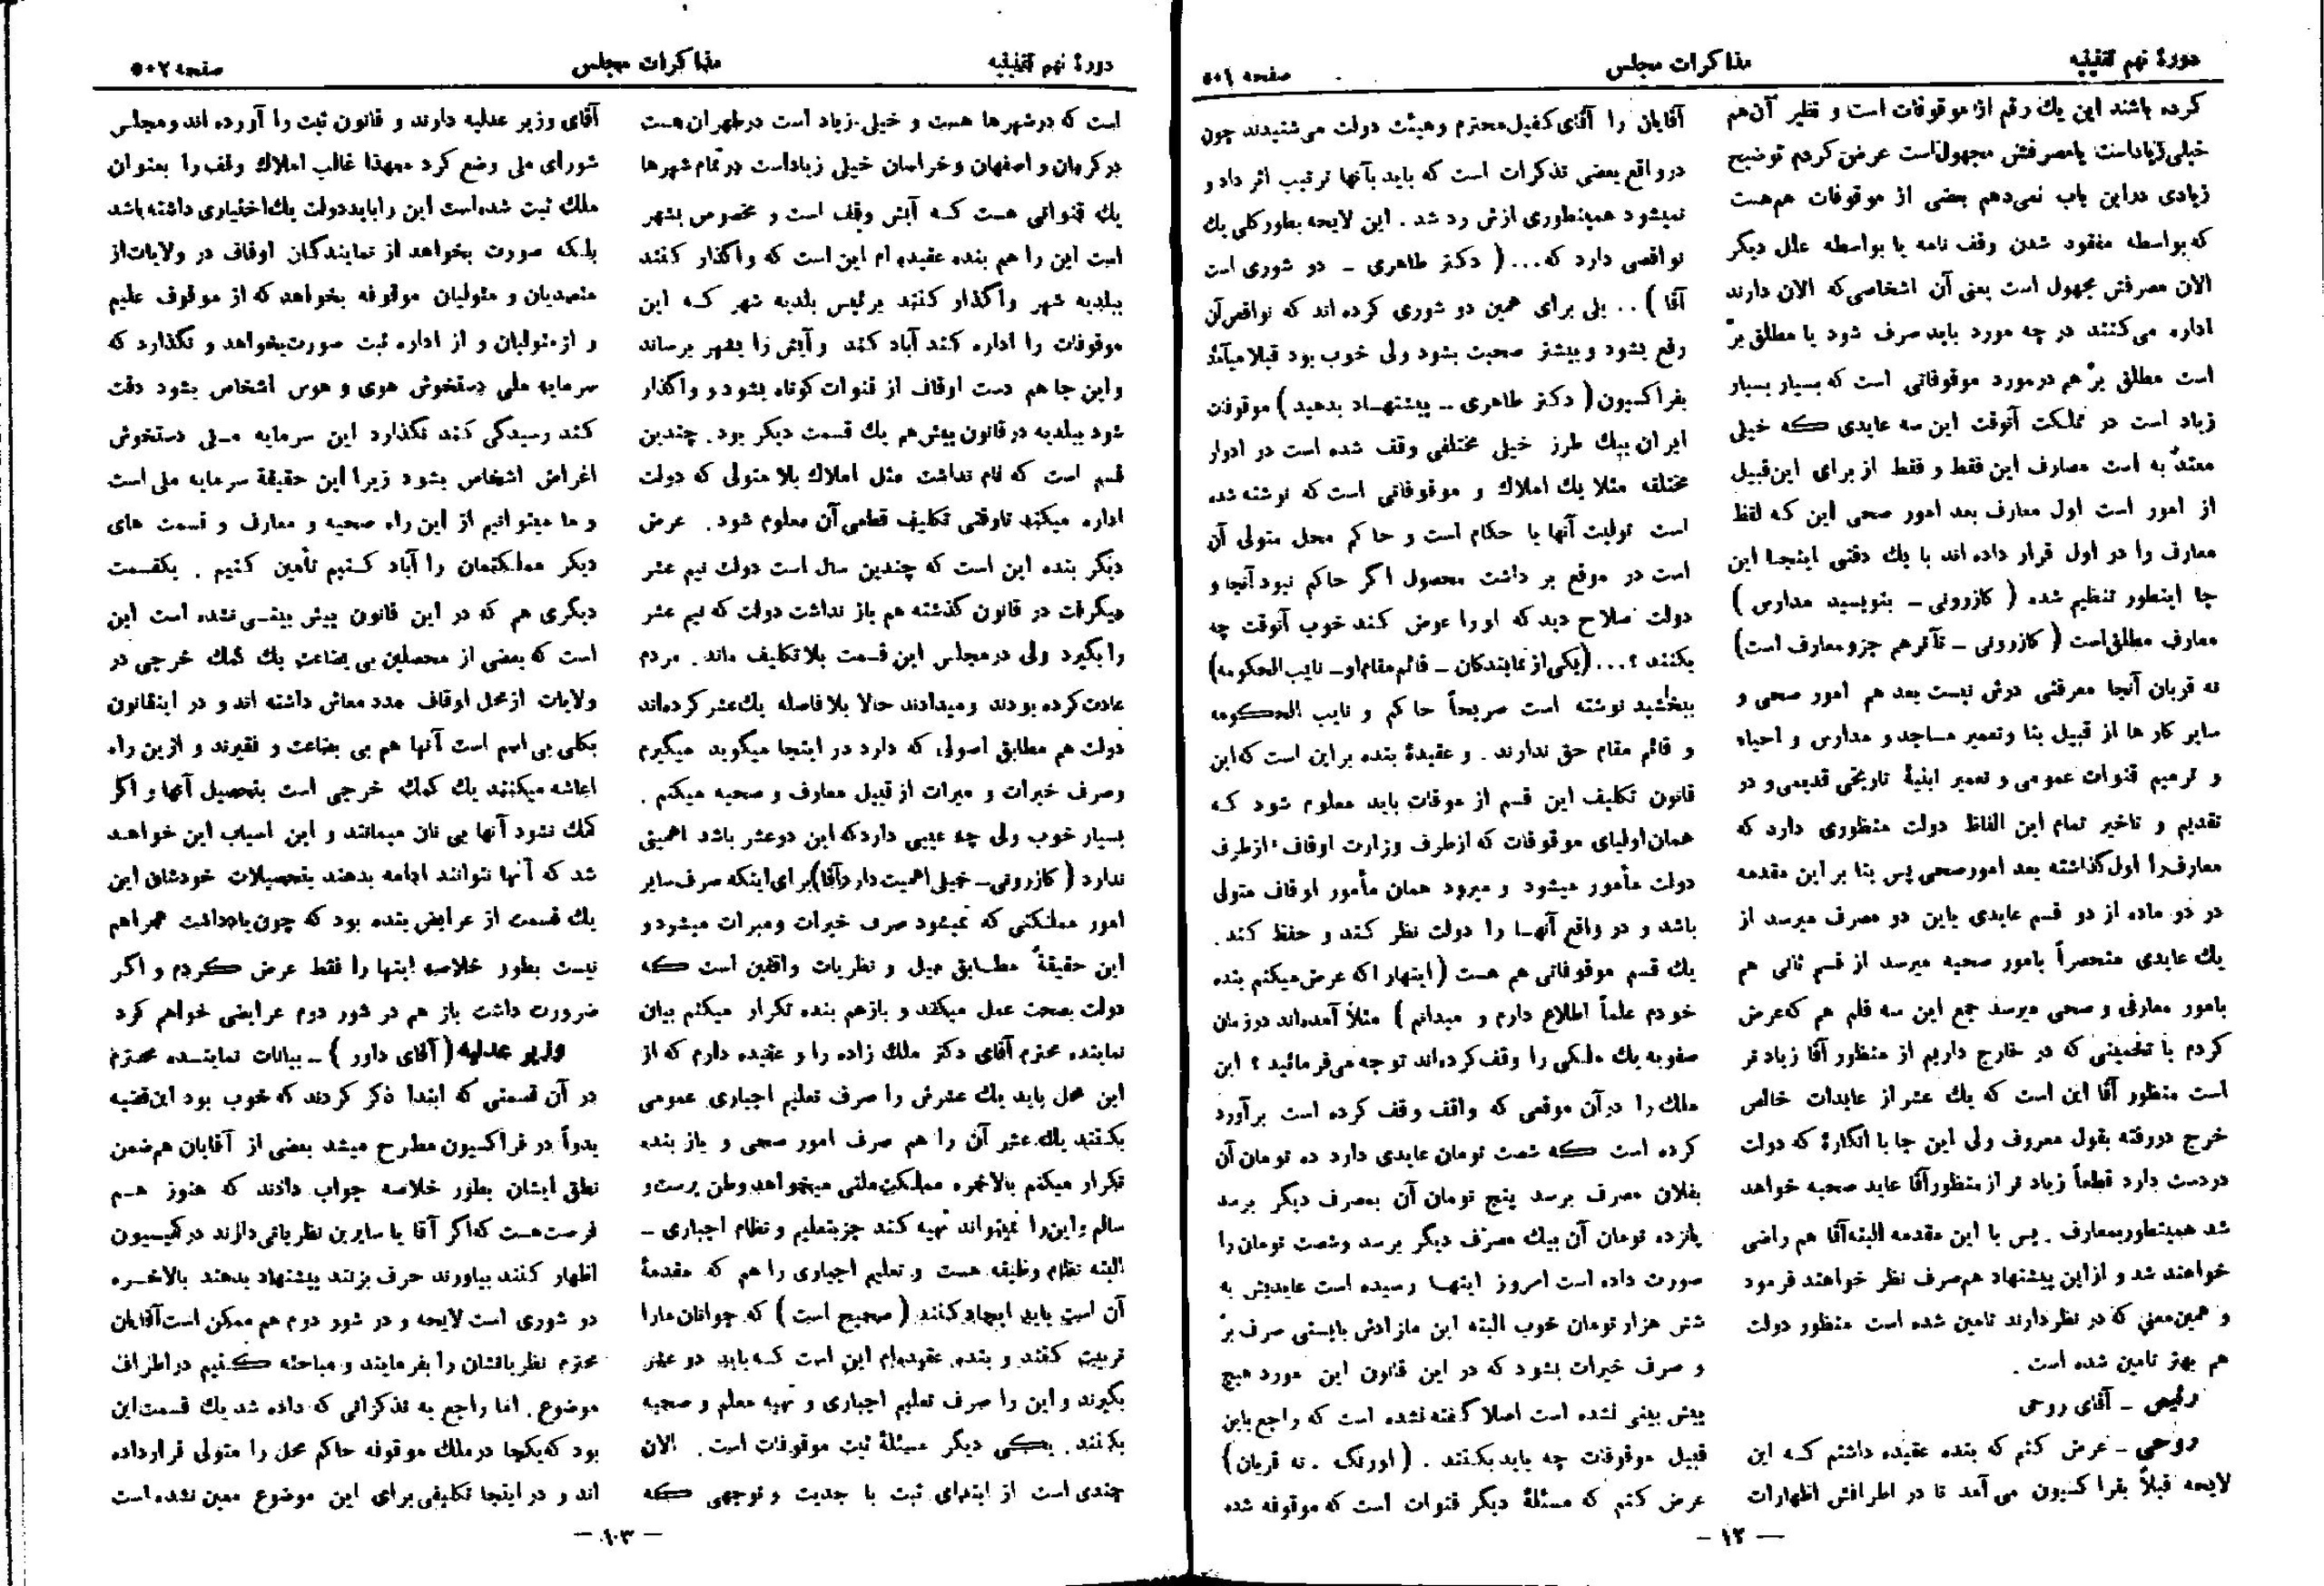 دورهٔ نهم تقنینیه
مذاکرات مجلس
صفحه ۵۰۱
کرده باشند این یك رقم از موقوفات است و نظیر آن هم
خیلی زیاد است یا مصرفش مجهول است عرض کردم توضیح
زیادی در این باب نمی‌دهم بعضی از موقوفات هم هست
که بواسطه مفقود شدن وقف نامه یا بواسطه علل دیگر
الان مصرفش مجهول است یعنی آن اشخاصی که الان دارند
اداره می‌کنند در چه مورد باید صرف شود یا مطلق برّ
است مطلق برّ هم در مورد موقوفاتی است که بسیار بسیار
زیاد است در مملکت آنوقت این سه عایدی که خیلی
معتدٌ به است مصارف این فقط و فقط از برای این قبیل
از امور است اول معارف بعد امور صحی این که لفظ
معارف را در اول قرار داده اند با یك دقتی اینجا این
جا اینطور تنظیم شده ( کازرونی ـ بنویسید مدارس )
معارف مطلق است ( کازرونی ـ تآتر هم جزو معارف است)
نه قربان آنجا معرفتی درش نیست بعد هم امور صحی و
سایر کار ها از قبیل بنا و تعمیر مساجد و مدارس و احیاء
و ترمیم قنوات عمومی و تعمیر ابنیهٔ تاریخی قدیمی و در
تقدیم و تاخیر تمام این الفاظ دولت منظوری دارد که
معارف را اول گذاشته بعد امور صحی پس بنا بر این مقدمه
در دو ماده از دو قسم عایدی باین دو مصرف میرسد از
یك عایدی منحصراً بامور صحیه میرسد از قسم ثانی هم
بامور معارفی و صحی میرسد جمع این سه قلم هم که عرض
کردم با تخمینی که در خارج داریم از منظور آقا زیاد تر
است منظور آقا این است که یك عشر از عایدات خالص
خرج دررفته بقول معروف ولی این جا با انگارهٔ که دولت
در دست دارد قطعاً زیاد تر از منظور آقا عاید صحیه خواهد
شد همینطور بمعارف . پس با این مقدمه البته آقا هم راضی
خواهند شد و از این پیشنهاد هم صرف نظر خواهند فرمود
و همین معنی که در نظر دارند تامین شده است منظور دولت
هم بهتر تامین شده است .
رئیس ـ آقای روحی
روحی ـ عرض کنم که بنده عقیده داشتم که این
لایحه قبلاً بفراکسیون می آمد تا در اطرافش اظهارات
آقایان را آقای کفیل محترم و هیئت دولت می‌شنیدند چون
در واقع بعضی تذکرات است که باید بآنها ترتیب اثر داد و
نمیشود همینطوری ازش رد شد . این لایحه بطور کلی یك
نواقصی دارد که... ( دکتر طاهری ـ دو شوری است
آقا ) .. بلی برای همین دو شوری کرده اند که نواقص آن
رفع بشود و بیشتر صحبت بشود ولی خوب بود قبلا میآمد
بفراکسیون ( دکتر طاهری ـ پیشنهاد بدهید ) موقوفات
ایران بیك طرز خیلی مختلفی وقف شده است در ادوار
مختلفه مثلا یك املاك و موقوفاتی است که نوشته شده
است تولیت آنها با حکام است و حاکم محل متولی آن
است در موقع بر داشت محصول اگر حاکم نبود آنجا و
دولت صلاح دید که او را عوض کند خوب آنوقت چه
بکنند ؟... (یکی از نمایندگان ـ قائم مقام او ـ نایب الحکومه)
ببخشید نوشته است صریحاً حاکم و نایب الحکومه
و قائم مقام حق ندارند . و عقیدهٔ بنده بر این است که این
قانون تکلیف این قسم از موقات باید معلوم شود که
همان اولیای موقوفات که از طرف وزارت اوقاف از طرف
دولت مأمور میشود و میرود همان مأمور اوقاف متولی
باشد و در واقع آنها را دولت نظر کند و حفظ کند .
یك قسم موقوفاتی هم هست (اینهارا که عرض میکنم بنده
خودم علماً اطلاع دارم و میدانم ) مثلاً آمده‌اند در زمان
صفویه یك ملکی را وقف کرده‌اند توجه می‌فرمائید ؟ این
ملك را در آن موقعی که واقف وقف کرده است برآورد
کرده است که شصت تومان عایدی دارد ده تومان آن
بفلان مصرف برسد پنج تومان آن بمصرف دیگر برسد
پانزده تومان آن بیك مصرف دیگر برسد و شصت تومان را
صورت داده است امروز اینها رسیده است عایدیش به
شش هزار تومان خوب البته این مازادش بایستی صرف برّ
و صرف خیرات بشود که در این قانون این مورد هیچ
پیش بینی نشده است اصلا گفته نشده است که راجع باین
قبیل موقوفات چه باید بکنند . ( اورنگ ـ نه قربان )
عرض کنم که مسئلهٔ دیگر قنوات است که موقوفه شده
— ۱۲ —
دورهٔ نهم تقنینیه
مذاکرات مجلس
صفحه ۵۰۲
است که در شهر ها هست و خیلی زیاد است در طهران هست
در کرمان و اصفهان و خراسان خیلی زیاد است در تمام شهر ها
یك قنواتی هست که آبش وقف است و مخصوص بشهر
است این را هم بنده عقیده ام این است که واگذار کنند
ببلدیه شهر واگذار کنند برئیس بلدیه شهر که این
موقوفات را اداره کند آباد کند و آبش را بشهر برساند
و این جا هم دست اوقاف از قنوات کوتاه بشود و واگذار
شود ببلدیه در قانون پیش هم یك قسمت دیگر بود . چندین
قسم است که نام نداشت مثل املاك بلا متولی که دولت
اداره میکند تا وقتی تکلیف قطعی آن معلوم شود . عرض
دیگر بنده این است که چندین سال است دولت نیم عشر
میگرفت در قانون گذشته هم باز نداشت دولت که نیم عشر
را بگیرد ولی در مجلس این قسمت بلا تکلیف ماند . مردم
عادت کرده بودند و میدادند حالا بلا فاصله یك عشر کرده‌اند
دولت هم مطابق اصولی که دارد در اینجا میگوید میگیرم
و صرف خیرات و مبرات از قبیل معارف و صحیه میکنم .
بسیار خوب ولی چه عیبی دارد که این دو عشر باشد اهمیتی
ندارد ( کازرونی ـ خیلی اهمیت دارد آقا) برای اینکه صرف سایر
امور مملکتی که نمیشود صرف خیرات و مبرات میشود و
این حقیقةً مطابق میل و نظریات واقفین است که
دولت بصحت عمل میکند و باز هم بنده تکرار میکنم بیان
نماینده محترم آقای دکتر ملك زاده را و عقیده دارم که از
این محل باید یك عشرش را صرف تعلیم اجباری عمومی
بکنند یك عشر آن را هم صرف امور صحی و باز بنده
تکرار میکنم بالاخره مملکت ملتی میخواهد وطن پرست و
سالم و این را نمیتواند تهیه کند جز بتعلیم و نظام اجباری ـ
البته نظام وظیفه هست و تعلیم اجباری را هم که مقدمهٔ
آن است باید ایجاد کنند ( صحیح است ) که جوانان ما را
تربیت کنند و بنده عقیده‌ام این است که باید دو عشر
بگیرند و این را صرف تعلیم اجباری و تهیه معلم و صحیه
بکنند . یکی دیگر مسئلهٔ ثبت موقوفات است . الان
چندی است از ابتدای ثبت با جدیت و توجهی که
آقای وزیر عدلیه دارند و قانون ثبت را آورده اند و مجلس
شورای ملی وضع کرد معهذا غالب املاك وقف را بعنوان
ملك ثبت شده است این را باید دولت یك اختیاری داشته باشد
بلکه صورت بخواهد از نمایندگان اوقاف در ولایات از
متصدیان و متولیان موقوفه بخواهد که از موقوف علیهم
و از متولیان و از اداره ثبت صورت بخواهد و نگذارد که
سرمایه ملی دستخوش هوی و هوس اشخاص بشود دقت
کند رسیدگی کند نگذارد این سرمایه ملی دستخوش
اغراض اشخاص بشود زیرا این حقیقة سرمایه ملی است
و ما میتوانیم از این راه صحیه و معارف و قسمت های
دیگر مملکتمان را آباد کنیم تأمین کنیم . یکقسمت
دیگری هم که در این قانون پیش بینی نشده است این
است که بعضی از محصلین بی بضاعت یك کمك خرجی در
ولایات از محل اوقاف مدد معاش داشته اند و در اینقانون
بکلی بی اسم است آنها هم بی بضاعت و فقیرند و از این راه
اعاشه میکنند یك کمك خرجی است بتحصیل آنها و اگر
کمك نشود آنها بی نان میمانند و این اسباب این خواهد
شد که آنها نتوانند ادامه بدهند بتحصیلات خودشان این
یك قسمت از عرایض بنده بود که چون یادداشت همراهم
نیست بطور خلاصه اینها را فقط عرض کردم و اگر
ضرورت داشت باز هم در شور دوم عرایضی خواهم کرد
وزیر عدلیه ( آقای داور ) ـ بیانات نماینده محترم
در آن قسمتی که ابتدا ذکر کردند که خوب بود این قضیه
بدواً در فراکسیون مطرح میشد بعضی از آقایان هم ضمن
نطق ایشان بطور خلاصه جواب دادند که هنوز هم
فرصت هست که اگر آقا یا سایرین نظریاتی دارند در کمیسیون
اظهار کنند بیاورند حرف بزنند پیشنهاد بدهند بالاخره
دو شوری است لایحه و در شور دوم هم ممکن است آقایان
محترم نظریاتشان را بفرمایند و مباحثه کنیم در اطراف
موضوع . اما راجع به تذکراتی که داده شد یك قسمت این
بود که یکجا در ملك موقوفه حاکم محل را متولی قرار داده
اند و در اینجا تکلیفی برای این موضوع معین نشده است
— ۱۰۳ —